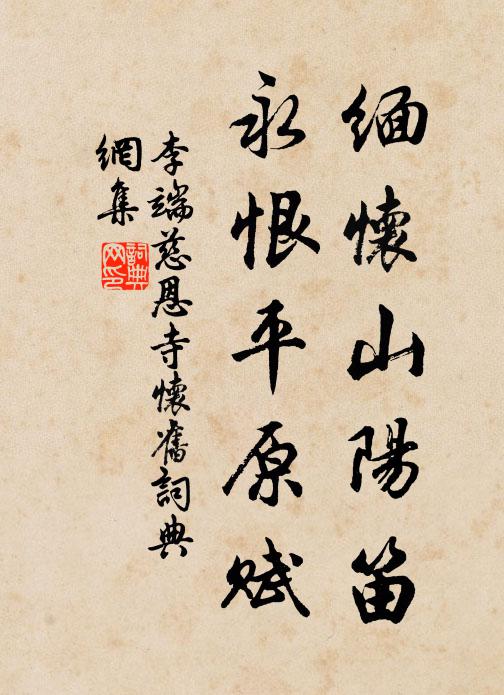 緬懷山陽笛
永恨平原賦
李端慈恩寺懷舊詞典
網集
詞典網印